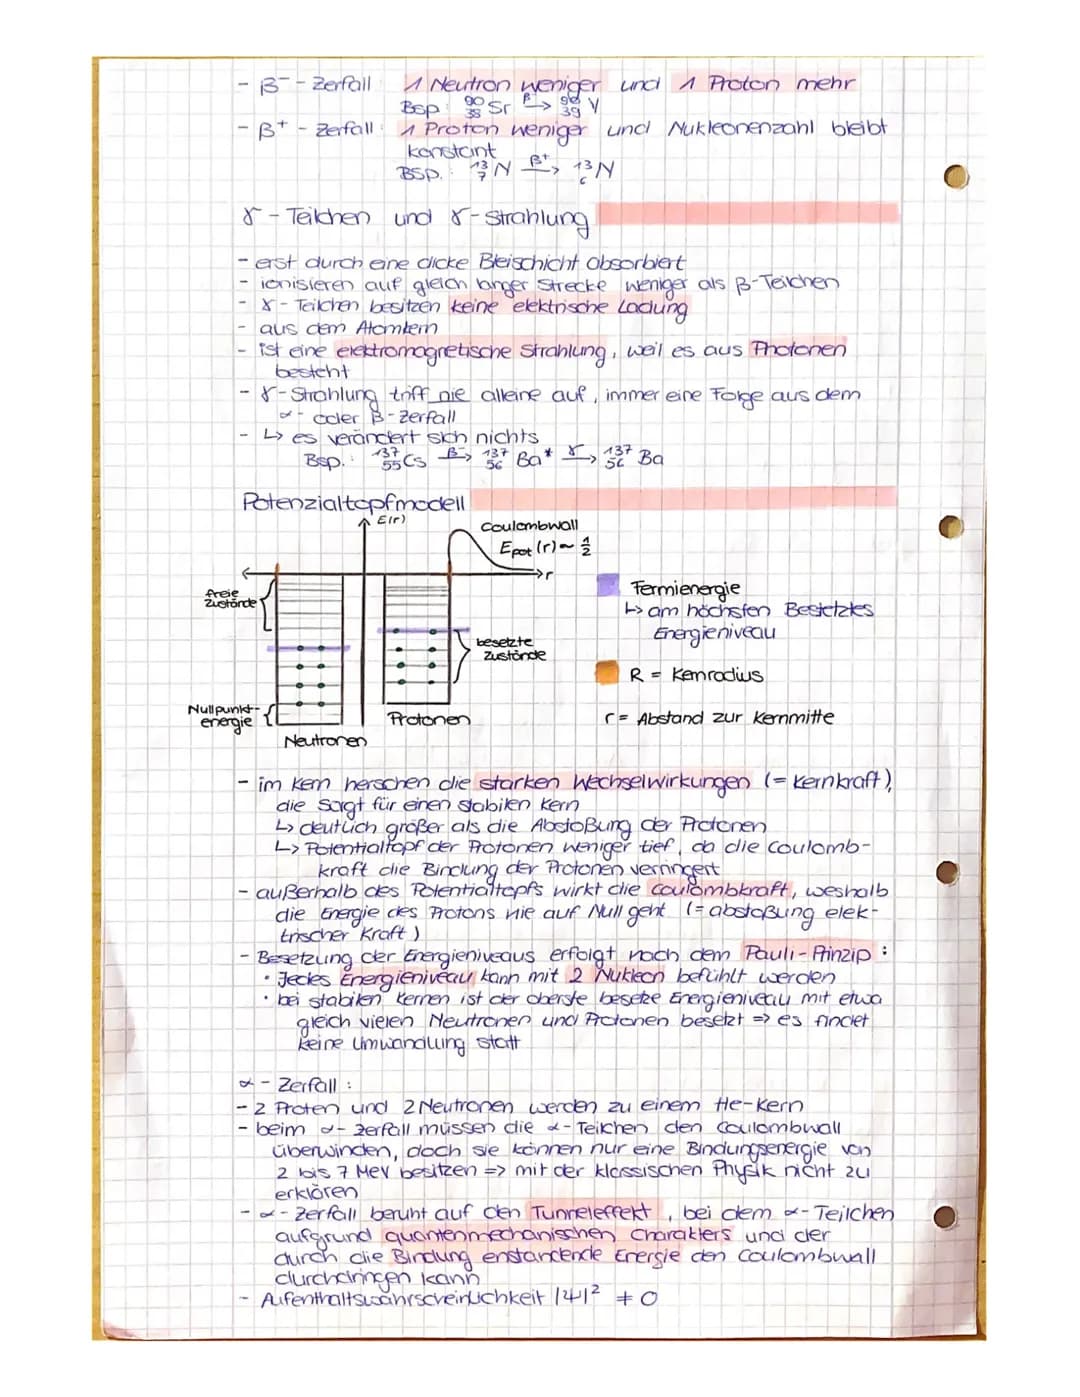 - β⁻ - Zerfall: 1 Neutron weniger und 1 Proton mehr
Bsp: ⁹⁰₃₈Sr β⁻→ ⁹⁰₃₉Y
- β⁺ - Zerfall: 1 Proton weniger und Nukleonenzahl bleibt
konstant
BSP.: ¹³₇N β⁺→ ¹³₆N
γ - Teilchen und γ - Strahlung
- erst durch eine dicke Bleischicht absorbiert
- ionisieren auf gleich langer Strecke weniger als β-Teilchen
- γ - Teilchen besitzen keine elektrische Ladung
- aus dem Atomkern
- ist eine elektromagnetische Strahlung, weil es aus Photonen
besteht
- γ-Strahlung triff nie alleine auf, immer eine Folge aus dem
α- oder β-Zerfall
- ↳ es verändert sich nichts
Bsp.: ¹³⁷₅₅Cs β⁻→ ¹³⁷₅₆Ba* γ→ ¹³⁷₅₆Ba
Potenzialtopfmodell
E(r)
Coulombwall
Epot (r) ~ 1/2
r
freie
Zustände
besetzte
Zustände
Nullpunkt-
energie
Neutronen
Protonen
Fermienergie
↳ am höchsten Besietztes
Energieniveau
R = Kernradius
r = Abstand zur Kernmitte
- im Kern herschen die starken Wechselwirkungen (= Kernkraft),
die sorgt für einen stabilen Kern
↳ deutlich größer als die Abstoßung der Protonen
↳ Potentialtopf der Protonen weniger tief, da die Coulomb-
kraft die Bindung der Protonen verringert
- außerhalb des Potentialtopfs wirkt die Coulombkraft, weshalb
die Energie des Protons nie auf Null geht (= abstoßung elek-
trischer Kraft)
- Besetzung der Energieniveaus erfolgt nach dem Pauli-Prinzip:
· Jedes Energieniveau kann mit 2 Nukleon befühlt werden
· bei stabilen Kernen ist der oberste besetze Energieniveau mit etwa
gleich vielen Neutronen und Protonen besetzt => es findet
keine Umwandlung statt
α - Zerfall:
- 2 Proten und 2 Neutronen werden zu einem He-Kern
- beim α - Zerfall müssen die α-Teilchen den Coulombwall
überwinden, doch sie können nur eine Bindungsenergie von
2 bis 7 MeV besitzen => mit der klassischen Physik nicht zu
erklären
- α - Zerfall beruht auf den Tunneleffekt, bei dem α-Teilchen
aufgrund quantenmechanischen Charakters und der
durch die Bindung enstandende Energie den Coulombwall
durchdringen kann
- Aufenthaltswahrscheinlichkeit |Ψ|² ≠ 0